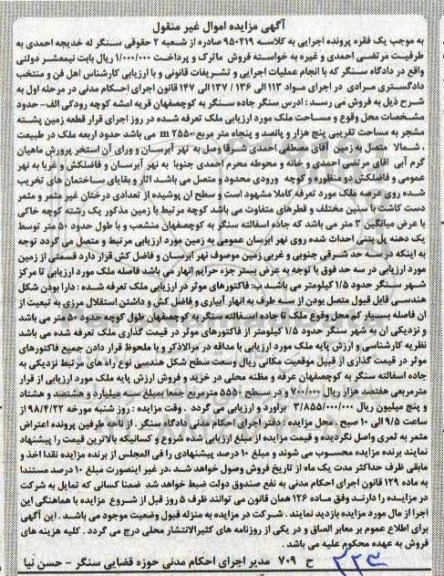 آگهی مزایده اموال غیر منقول
به موجب یک فقره پرونده اجرایی به کلاسه ۹۵۰۲۱۹ صادره از شعبه ۲ حقوقی سنگر له خدیجه احمدی به
طرفیت مرتضی احمدی و غیره به خواسته فروش ماترک و پرداخت ۱/۰۰۰/۰۰۰ ریال بابت نیمعشر دولتی
واقع در دادگاه سنگر که با انجام عملیات اجرایی و تشریفات قانونی و با ارزیابی کارشناس اهل فن و منتخب
دادگستری مرادی در اجرای مواد ۱۱۳ الی ۱۲۶ / ۱۳۷ الی ۱۴۷ قانون اجرای احکام مدنی در مرحله اول به
شرح ذیل به فروش می رسد : ادرس سنگر جاده سنگر به کوچصفهان قریه امشه کوچه رودکی الف - حدود
مشخصات محل وقوع و مساحت ملک مورد ارزیابی ملک تعرفه شده در روز اجرای قرار قطعه زمین پشته
مشجر به مساحت تقریبی پنج هزار و پانصد و پنجاه متر مربع m ۵۵۵۰ می باشد حدود اربعه ملک در طبیعت
، شمالا متصل به زمین آقای مصطفی احمدی شرقا وصل به نهر آبرسان و ورای آن استخر پرورش ماهیان
گرم آبی اقای مرتضی احمدی و خانه و محوطه محرم احمدی جنوبا به نهر آبرسان و فاضلکش و غربا به نهر
عمومی و فاضلکش دو منظوره و کوچه ورودی محدود و متصل می باشد آثار و بقایای ساختمان های تخریب
شده روی عرصه ملک مورد تعرفه کاملا مشهود است و سطح ان پوشیده از تعدادی درختان غیر مثمر و مثمر
دست کاشت با سنین مختلف و قطرهای متفاوت می باشد کوچه مرتبط با زمین مذکور یک رشته کوچه خاکی
با عرض میانگین ۴ متر می باشد که جاده اسفالته سنگر به کوچصفهان منشعب و با طول حدود ۵۰ متر توسط
یک دهنه پل بتنی احداث شده روی نهر ابرسان عمومی به زمین مورد ارزیابی مرتبط و متصل می گردد توجه
به اینکه در سه حد شرقی جنوبی و غربی زمین موصوف نهر ابرسان و فاضل کش قرار دارد قسمتی از زمین
مورد ارزیابی در سه حد فوق با توجه به عرض بستر جزء حرایم انهار می باشد فاصله ملک مورد ارزیابی تا مرکز
شهر سنگر حدود ۱/۵ کیلومتر می باشد ب: فاکتورهای موثر در ارزیابی ملک تعرفه شده : دارا بودن شکل
هندسی قابل قبول متصل بودن از سه طرف به انهار آبیاری و فاضل کش و داشتن استقلال مرزی به تبعیت از
ان فاصله بسیار کم محل وقوع ملک تا جاده اسفالته سنگر به کوچصفهان طول کوچه حدود ۵۰ متر می باشد
و نزدیکی ان به شهر سنگر حدود ۱/۵ کیلومتر از فاکتورهای موثر در قیمت گذاری ملک تعرفه شده می باشد
نظریه کارشناسی و ارزش پایه ملک مورد ارزیابی با مداقه در مراتالاذکر و با ملحوظ قرار دادن جمیع فاکتورهای
موثر در قیمت گذاری از قبیل موقعیت مکانی ریالی وسعت سطح شکل هندسی نوع راه های مرتبط نزدیکی به
جاده اسفالته سنگر به کوچصفهان عرفه و مظنه محلی در خرید و فروش ارزش پایه ملک مورد ارزیابی از قرار
مترمربعی هفتصد هزار ریال ۷۰۰/۰۰۰ و در سطح ۵۵۵۰ مترمربع جمعا بمبلغ سه میلیارد و هشتصد و هشتاد
و پنج میلیون ریال ۳/۸۵۵/۰۰۰/۰۰۰ برآورد و ارزیابی می گردد . وقت مزایده : روز شنبه مورخه ۹۸/۴/۲۲ از
ساعت ۹/۵ الی ۱۰ صبح . محل مزایده : دفتر اجرای احکام مدنی دادگاه سنگر . از ناحیه طرفین پرونده اعتراض
مثمر به ثمری واصل نگردیده و قیمت مزایده از مبلغ ارزیابی شده شروع و کسانیکه بالاترین قیمت را پیشنهاد
نمایند برنده مزایده محسوب می شوند و مبلغ ۱۰ درصد پیشنهادی را فی المجلس از برنده مزایده نقدا اخذ و
مابقی ظرف حداکثر مدت یک ماه از تاریخ فروش وصول خواهد شد . در غیر اینصورت مبلغ ۱۰ درصد مستندا
به ماده ۱۲۹ قانون اجرای احکام مدنی به نفع صندوق دولت ضبط خواهد شد ضمنا کسانی که تمایل به شرکت
در مزایده را دارند وفق ماده ۱۲۶ همان قانون می توانند ظرف ۵ روز قبل از شروع مزایده با هماهنگی این
اجرا از مال مورد مزایده بازدید نمایند . شرکت در مزایده به منزله قبول وضعیت موجود می باشد . این آگهی
برای اطلاع عموم بر معابر الصاق و در یکی از روزنامه های کثیرالانتشار محلی درج می گردد . کلیه هزینه های
فروش به عهده محکوم علیه می باشد .
۲۲۳ ح ۷۰۹ مدیر اجرای احکام مدنی حوزه قضایی سنگر - حسن نیا